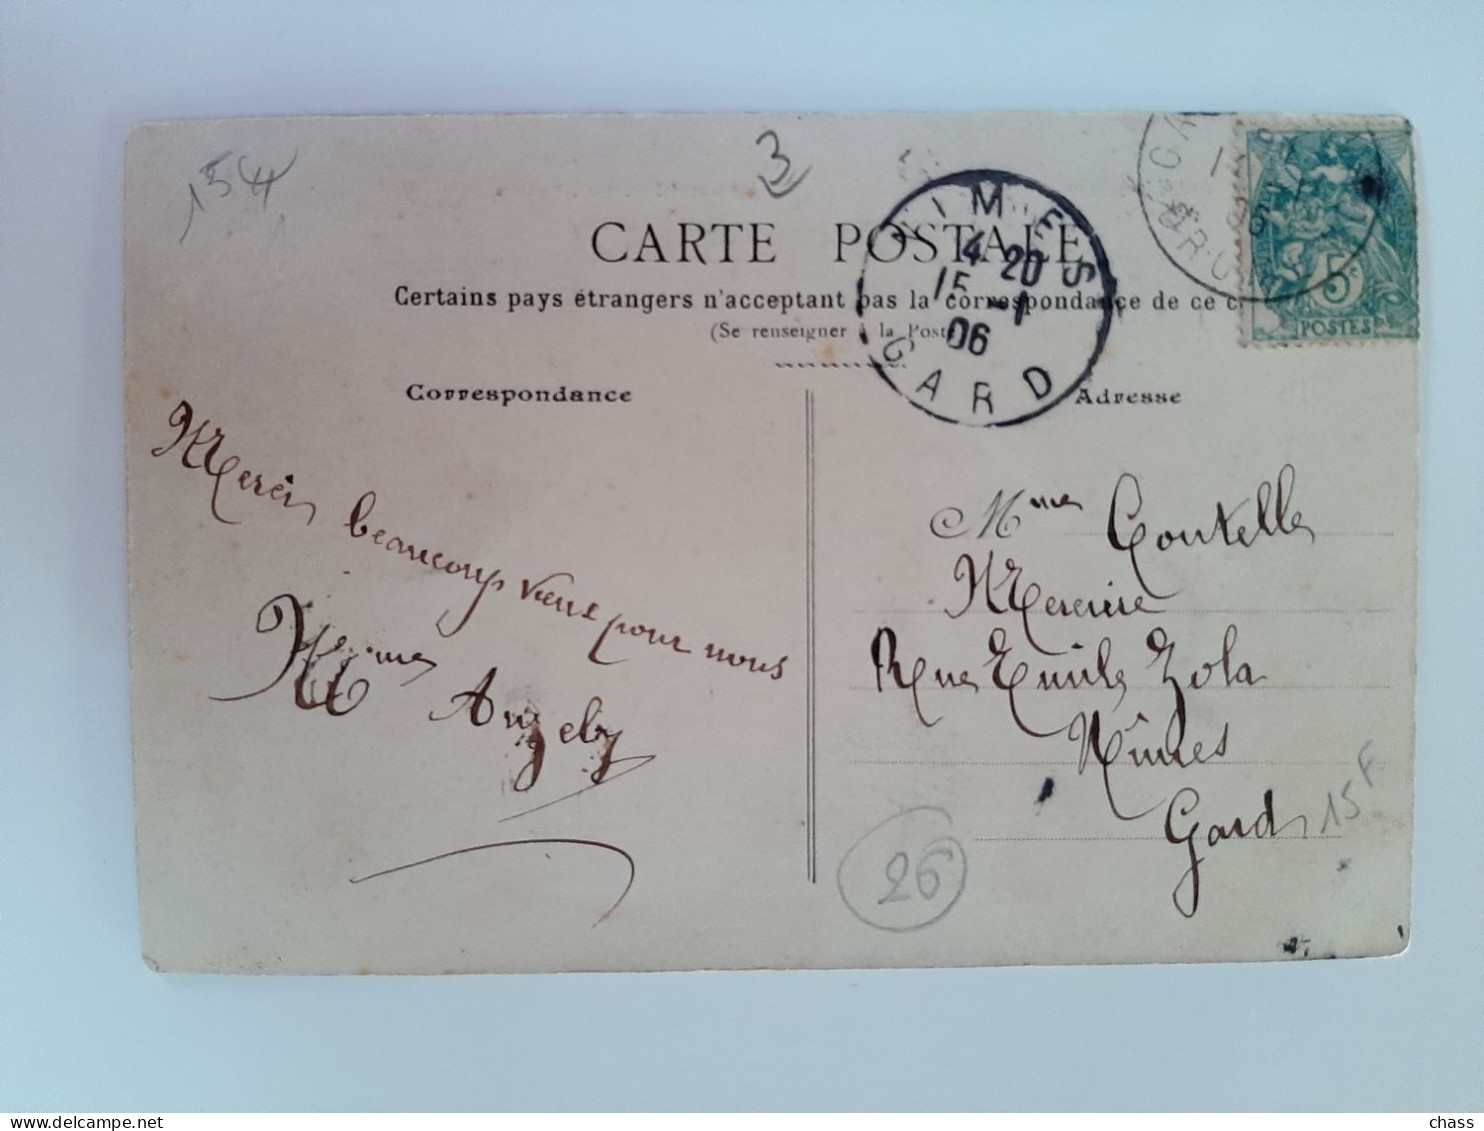 154
3
CARTE POSTALE
Certains pays étrangers n'acceptant pas la correspondance de ce
(Se renseigner à la Poste
NIMES
4 20
15 -1
06
GARD
5c
POSTES
Correspondance
Merci beaucoup vœux pour nous
Mme Angely
Adresse
Mme Coutelle
Mercière
Rue Emile Zola
Nîmes
Gard
15F
26
chass